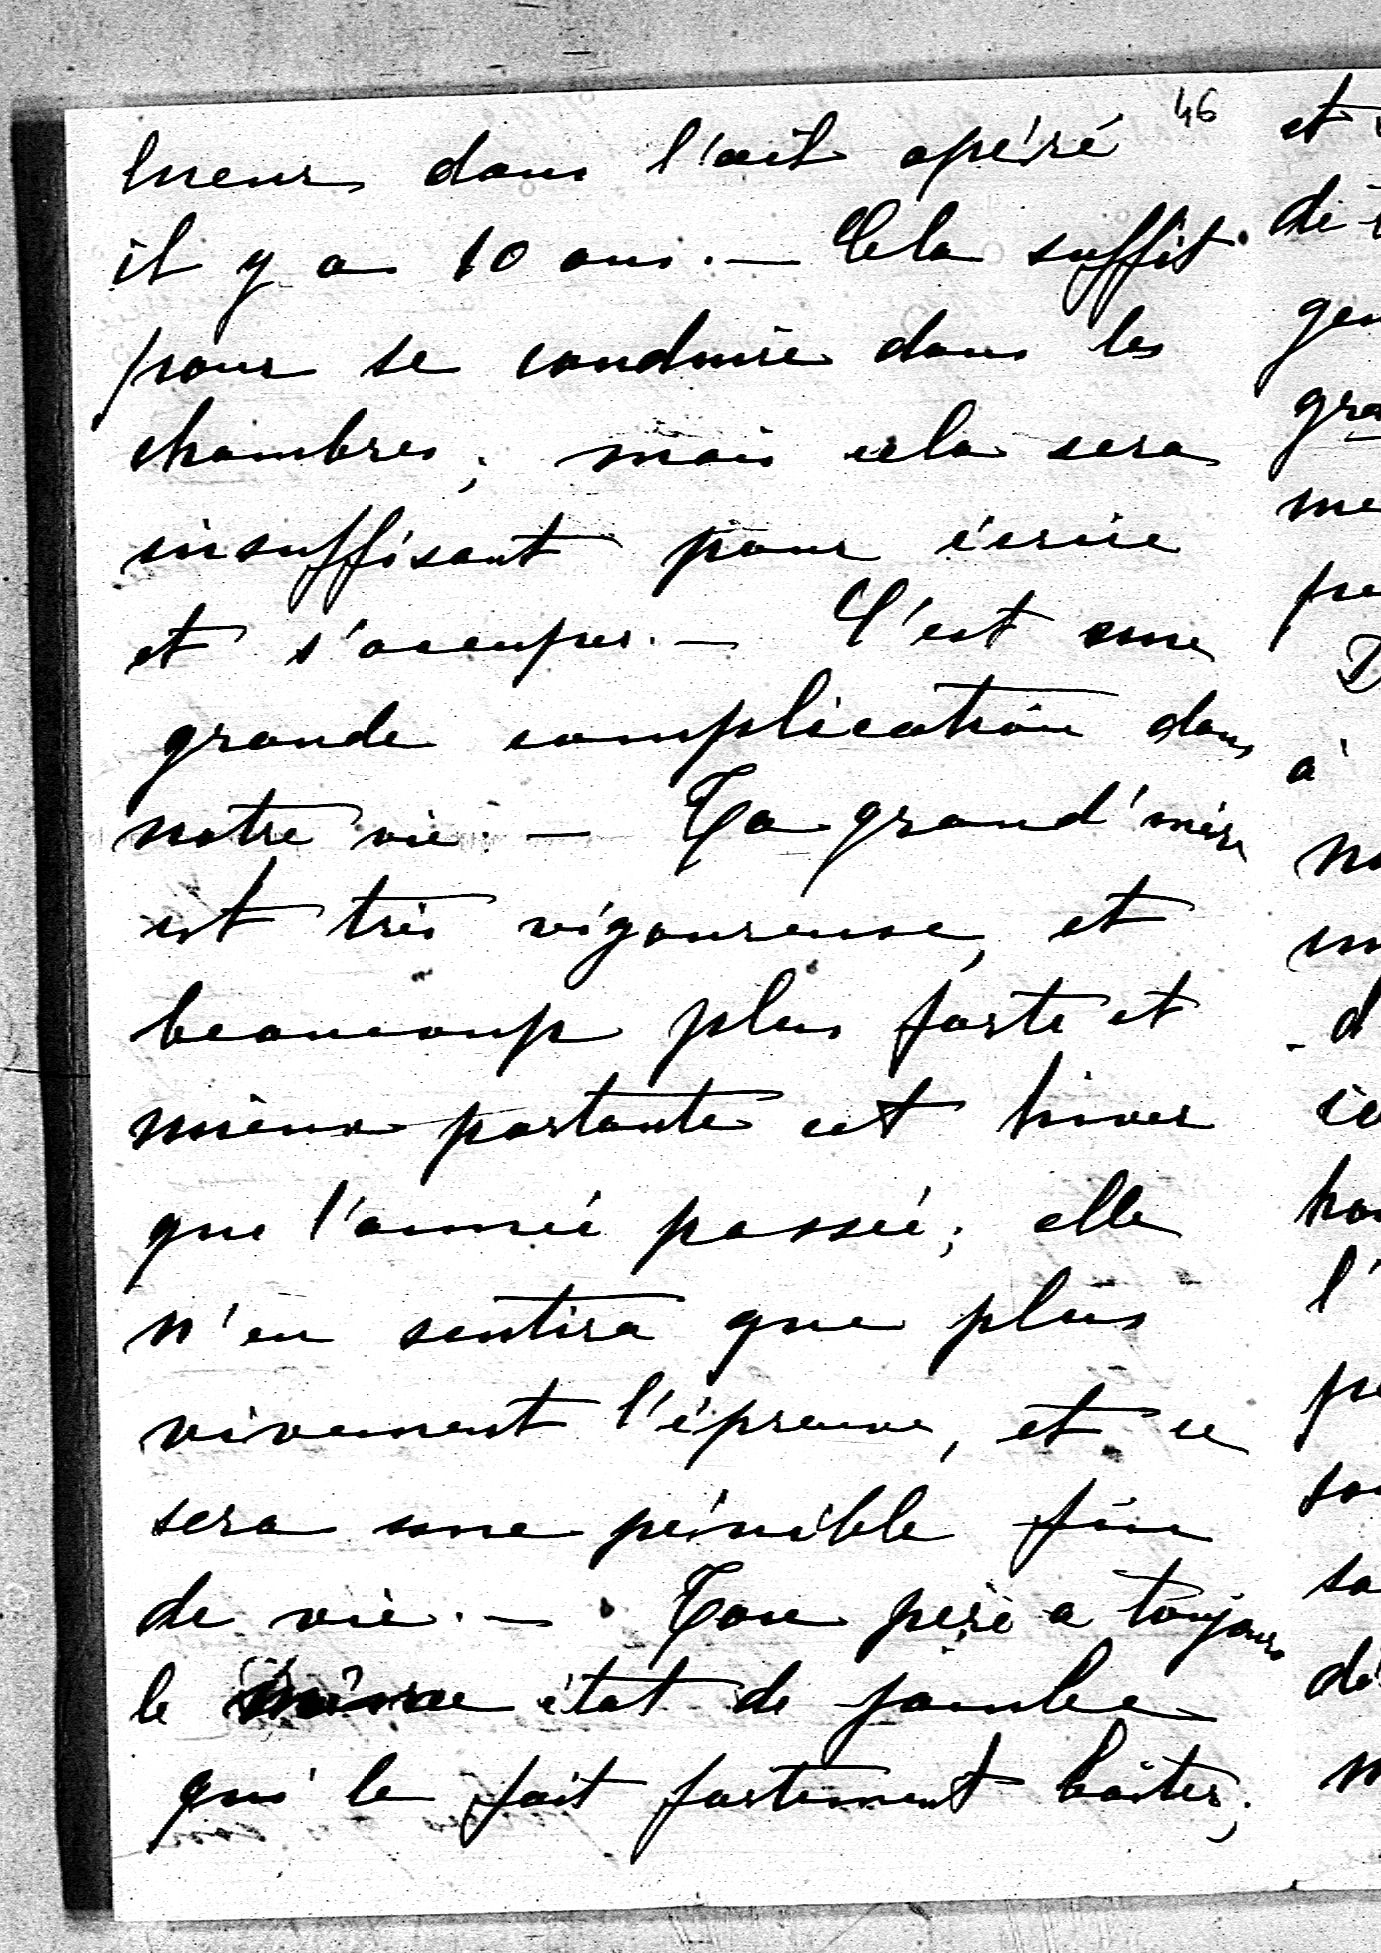 46
lueurs dans l'œil opéré
il y a 10 ans. — Cela suffit
pour se conduire dans les
chambres; mais cela sera
insuffisant pour écrire
et s'occuper. — C'est une
grande complication dans
notre vie. — Ta grand'mère
est très vigoureuse, et
beaucoup plus forte et
mieux portante cet hiver
que l'année passée; elle
n'en sentira que plus
vivement l'épreuve, et ce
sera une pénible fin
de vie. — Ton père a toujours
le même état de jambe
qui le fait fortement boiter;
et
à
l'